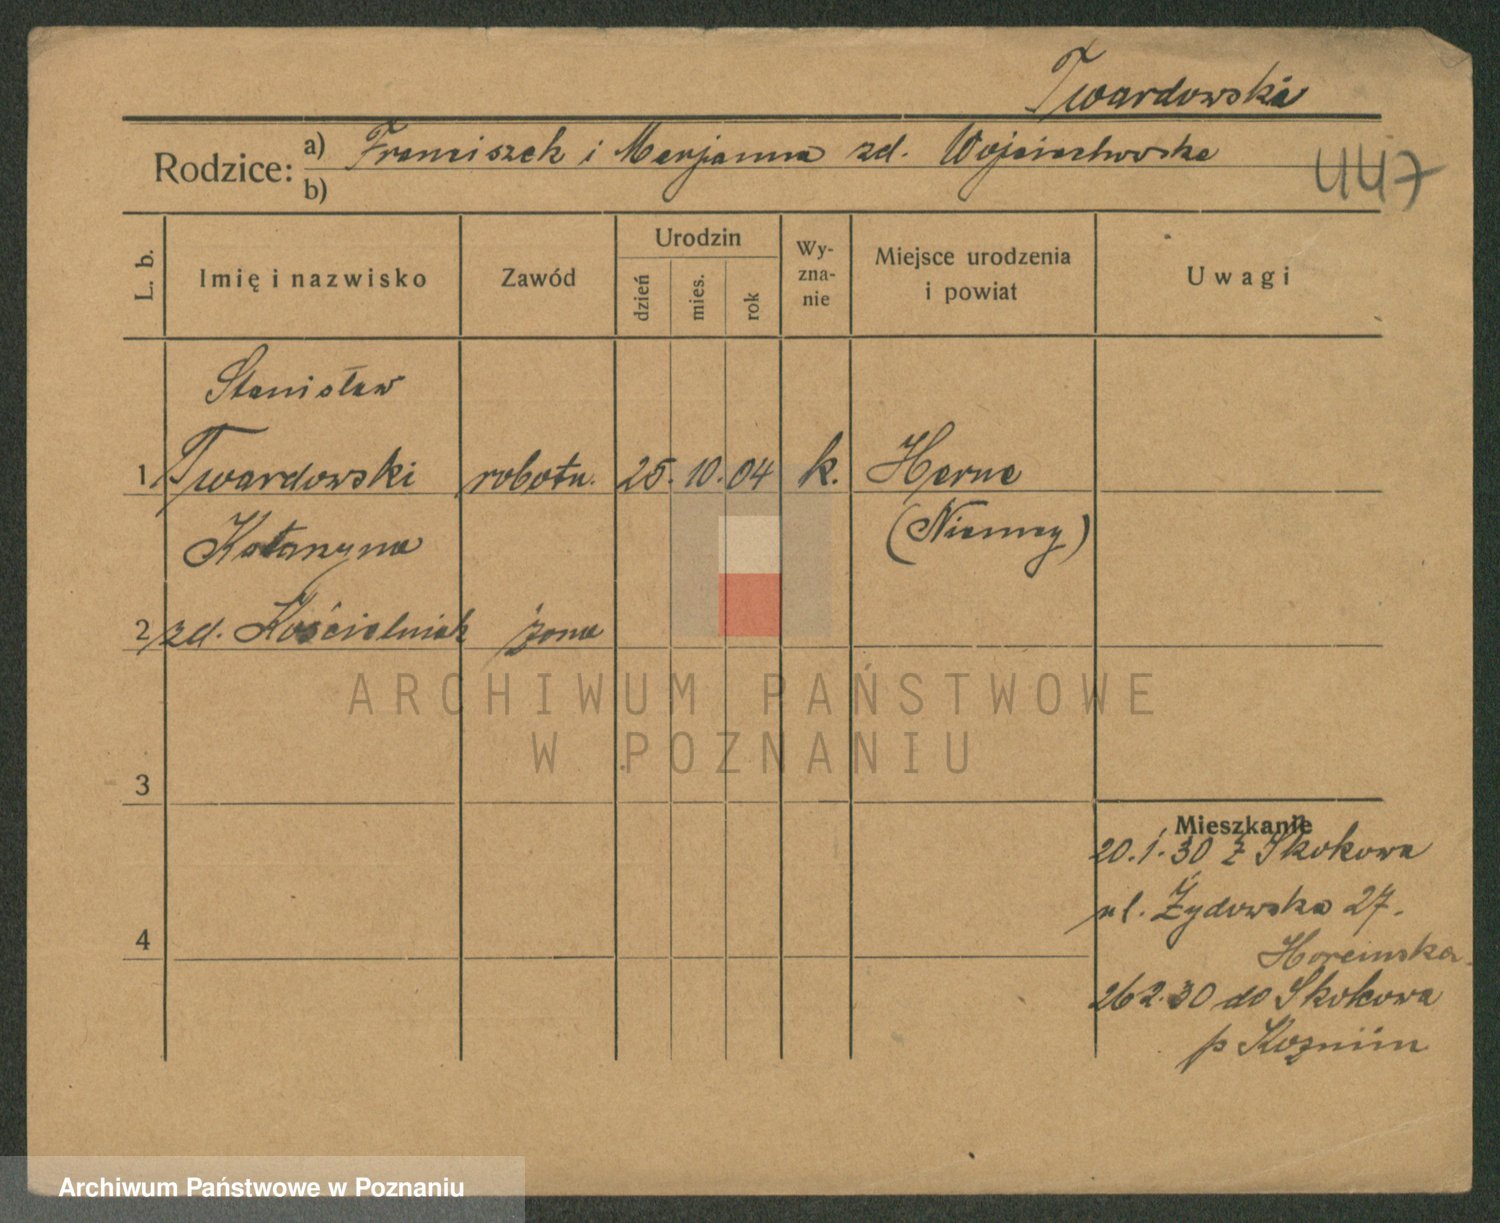 Twardowski
Rodzice: a) Franciszek i Marjanna zd. Wojciechowska
b)
447
L. b.
Imię i nazwisko
Zawód
Urodzin
dzień
mies.
rok
Wy-
zna-
nie
Miejsce urodzenia
i powiat
Uwagi
Stanisław
1 Twardowski robotn. 25. 10. 04 k. Herne
Katarzyna (Niemcy)
2 zd. Kościelniak żona
ARCHIWUM PAŃSTWOWE
W POZNANIU
3
Mieszkanie
20.1.30 z Skokowa
ul. Żydowska 27.
4
26 2.30 do Skokowa
p Koźmin
Archiwum Państwowe w Poznaniu